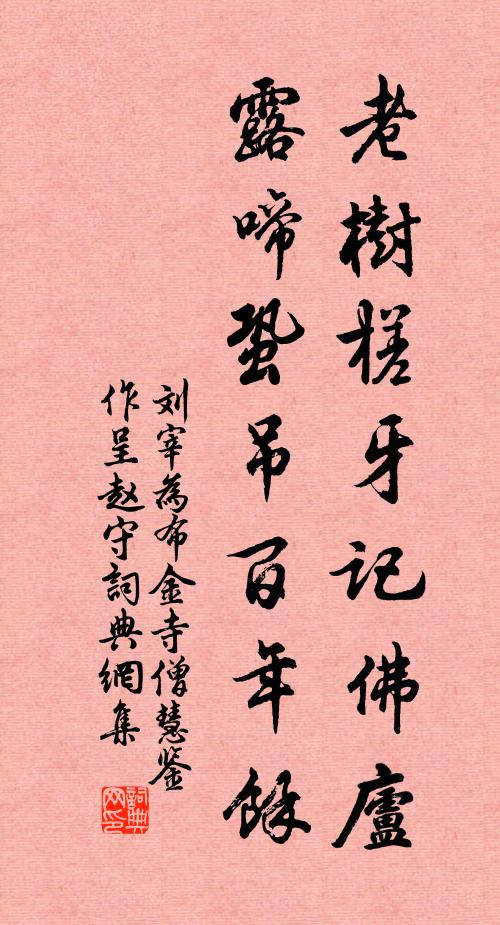 老樹槎牙記佛廬
露啼蛩吊百年餘
刘宰為布金寺僧慧鉴
作呈赵守詞典網集
詞典網印